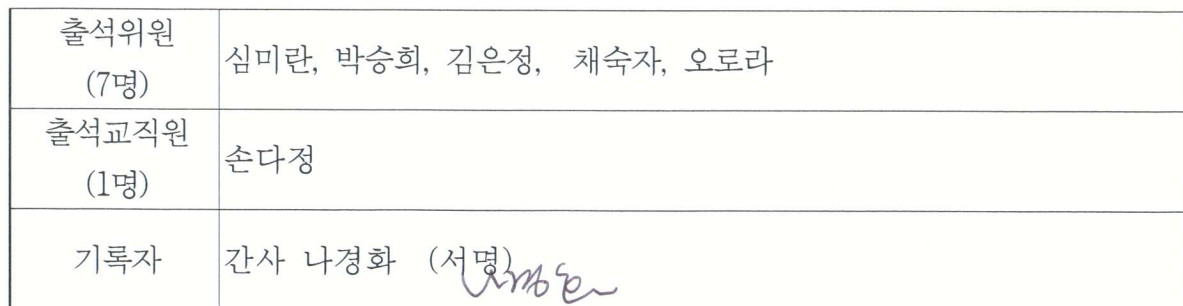 출석위원
(7명)
심미란, 박승희, 김은정, 채숙자, 오로라
출석교직원
(1명)
손다정
기록자
간사 나경화 (서명)